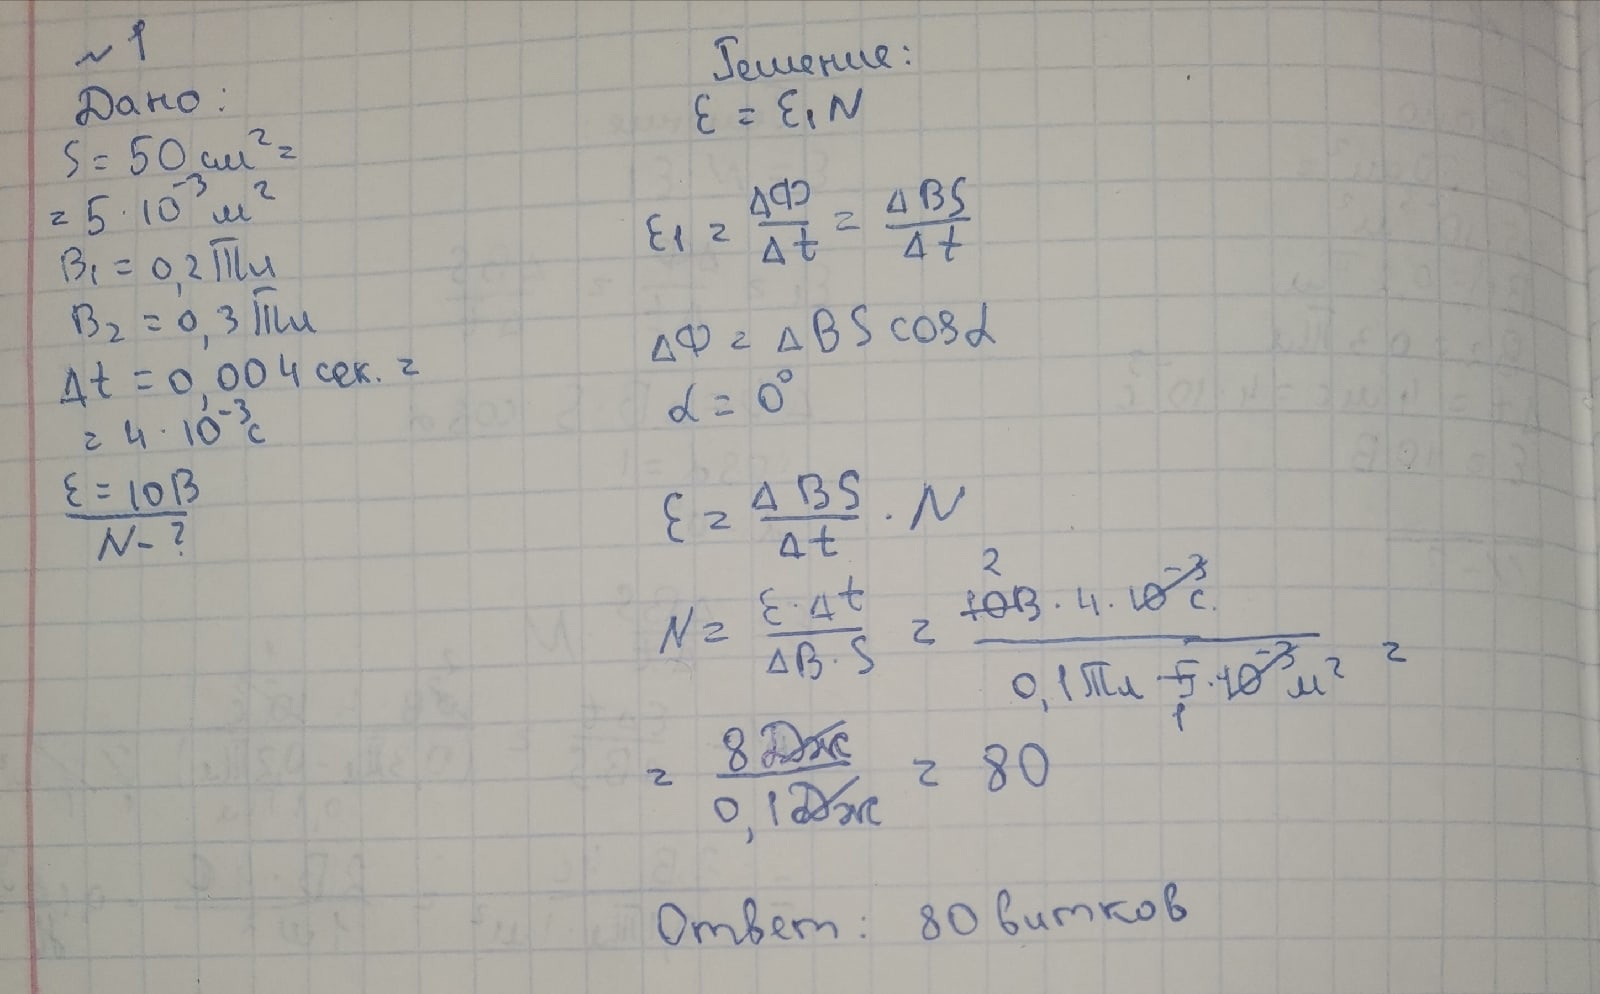 ~ 1
Дано:
S = 50 см² =
= 5 · 10⁻³ м²
B₁ = 0,2 Тл
B₂ = 0,3 Тл
Δt = 0,004 сек. =
= 4 · 10⁻³ с
Ɛ = 10 В
N - ?
Решение:
Ɛ = Ɛ₁ N
Ɛ₁ = ΔФ/Δt = ΔBS/Δt
ΔФ = ΔBS cosα
α = 0°
Ɛ = ΔBS/Δt · N
2
N = Ɛ·Δt/ΔB·S = 10В · 4 · 10⁻³ с. / 0,1 Тл · 5 · 10⁻³ м² =
1
= 8 Дж / 0,1 Дж = 80
Ответ: 80 витков